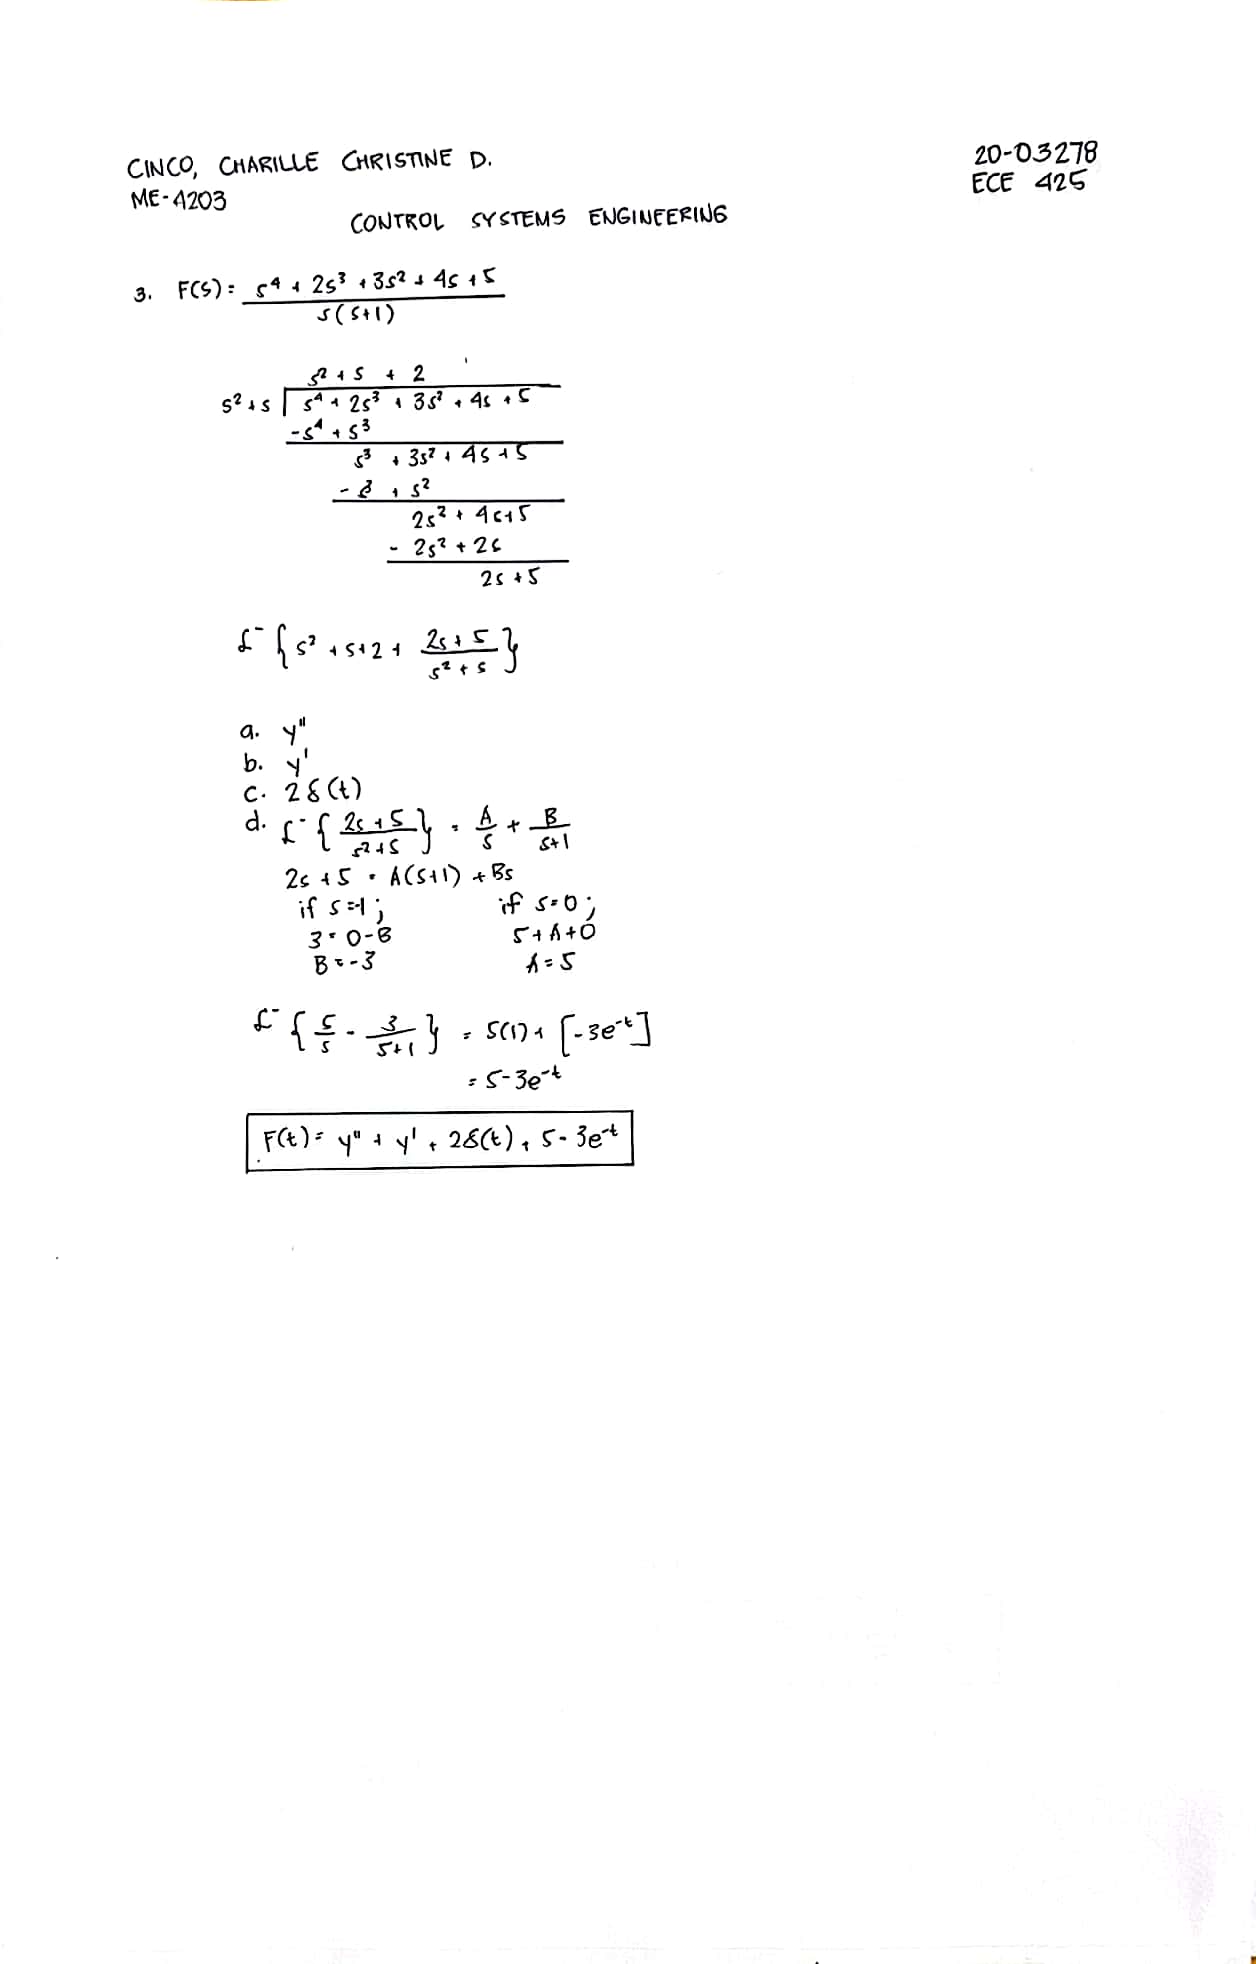 CINCO, CHARILLE CHRISTINE D.
20-03278
ME-4203
ECE 425
CONTROL SYSTEMS ENGINEERING
3. F(S) = s⁴ + 2s³ + 3s² + 4s + 5
s(s+1)
s² + s + 2
s² + s | s⁴ + 2s³ + 3s² + 4s + 5
- s⁴ + s³
s³ + 3s² + 4s + 5
- s³ + s²
2s² + 4s + 5
- 2s² + 2s
2s + 5
£⁻ { s² + s + 2 + (2s + 5)/(s² + s) }
a. y''
b. y'
c. 2δ(t)
d. £⁻ { (2s + 5)/(s² + s) } = A/s + B/(s+1)
2s + 5 = A(s+1) + Bs
if s=-1; if s=0;
3 = 0-B 5 + A + 0
B = -3 A = 5
£⁻ { 5/s - 3/(s+1) } = 5(1) + [-3e⁻ᵗ]
= 5-3e⁻ᵗ
F(t) = y'' + y' + 2δ(t) + 5 - 3e⁻ᵗ